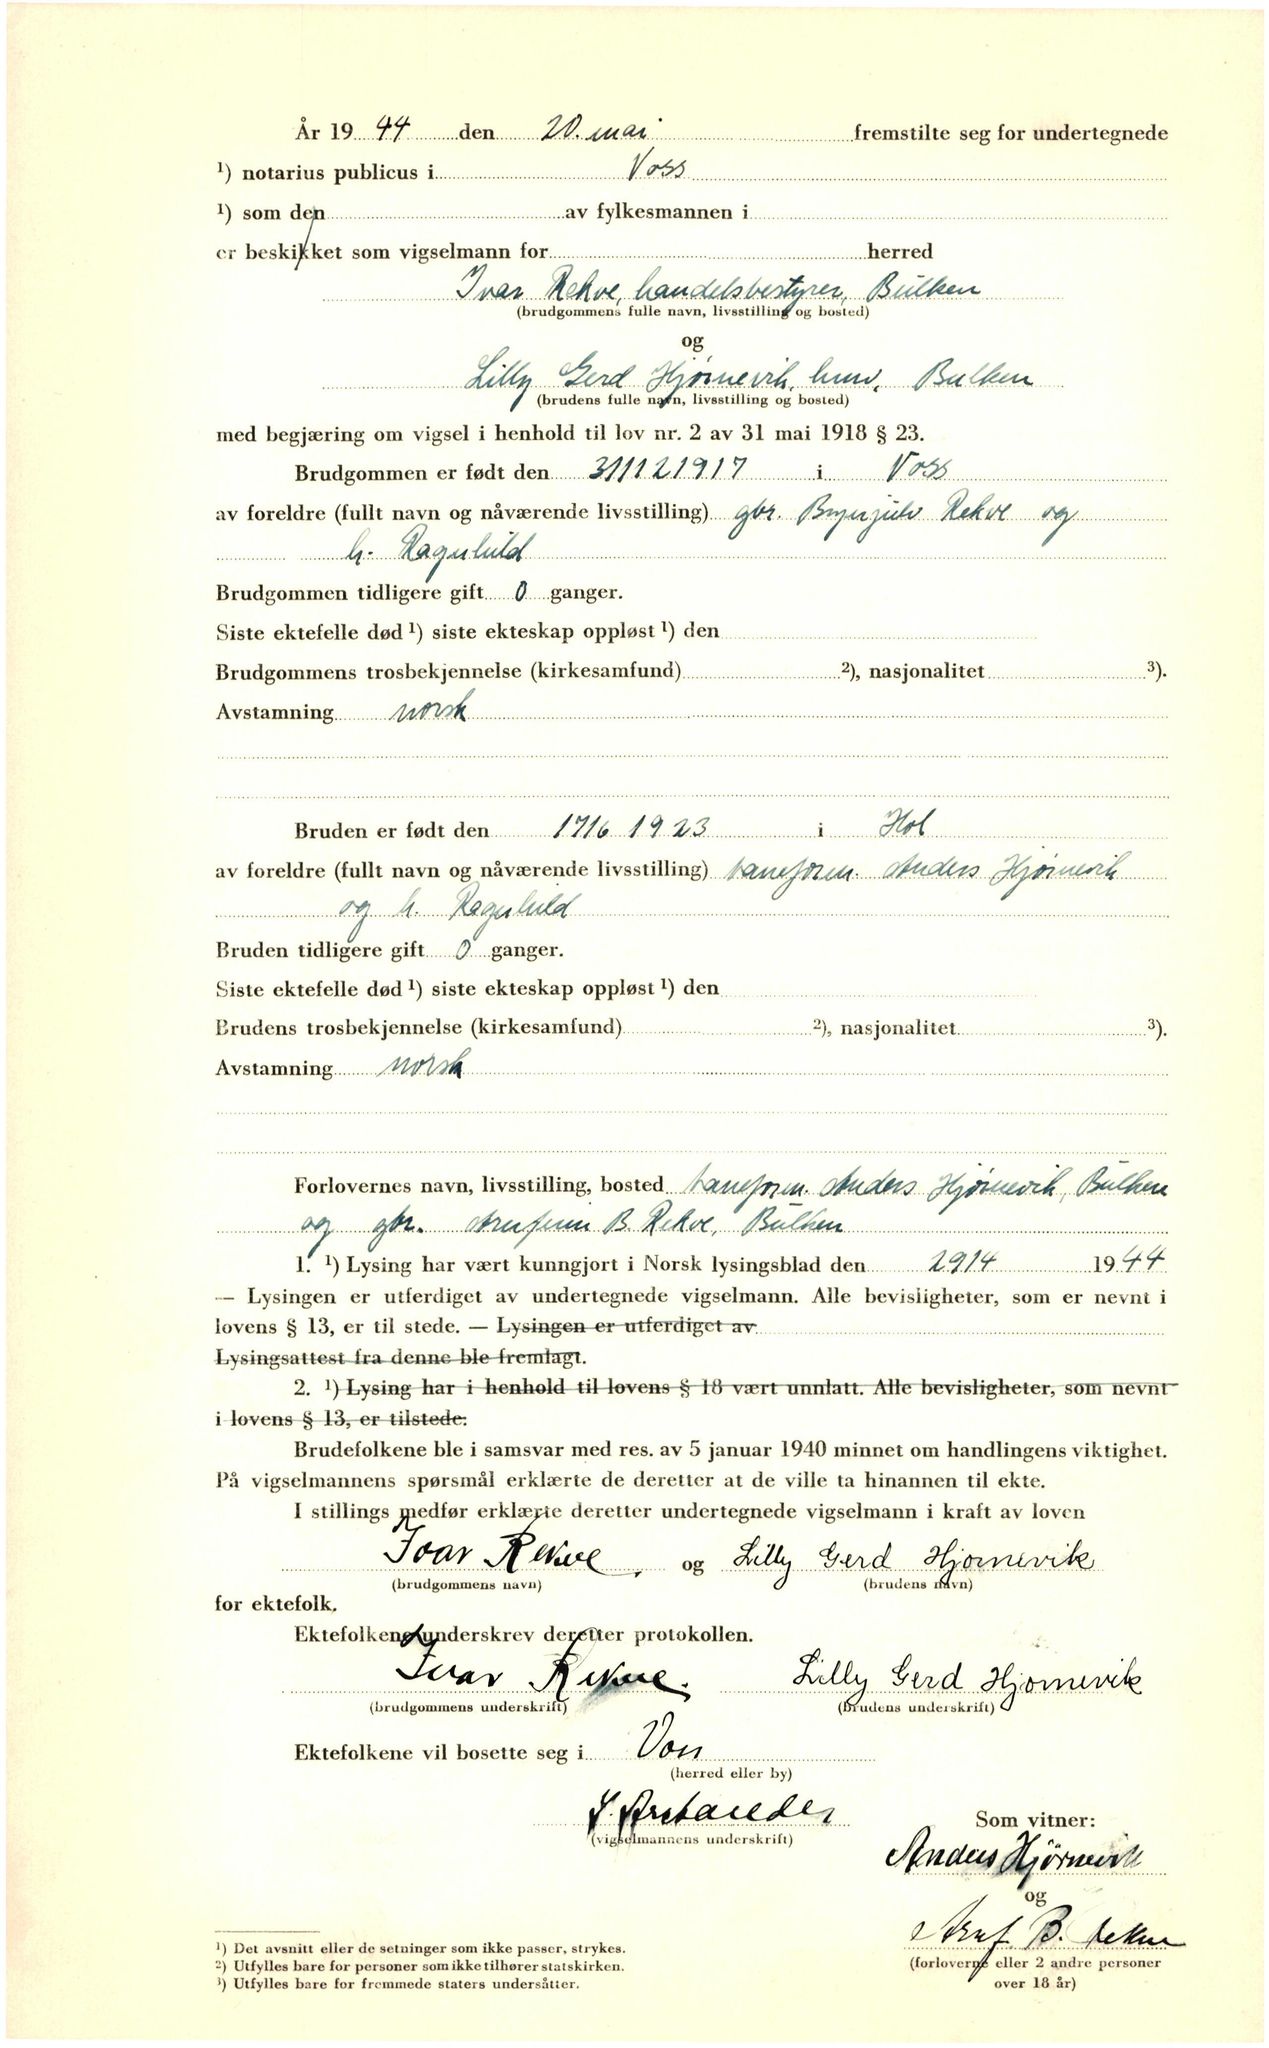 År 19 44 den 20. mai fremstilte seg for undertegnede
¹) notarius publicus i Voss
¹) som den av fylkesmannen i
er beskikket som vigselmann for herred
Ivar Rekve, handelsbestyrer, Bulken
(brudgommens fulle navn, livsstilling og bosted)
og
Lilly Gerd Hjørnevik, hmv, Bulken
(brudens fulle navn, livsstilling og bosted)
med begjæring om vigsel i henhold til lov nr. 2 av 31 mai 1918 § 23.
Brudgommen er født den 31/12 1917 i Voss
av foreldre (fullt navn og nåværende livsstilling) gbr. Brynjulv Rekve og
h. Ragnhild
Brudgommen tidligere gift 0 ganger.
Siste ektefelle død ¹) siste ekteskap oppløst ¹) den
Brudgommens trosbekjennelse (kirkesamfund) ²), nasjonalitet ³).
Avstamning norsk
Bruden er født den 17/6 1923 i Hol
av foreldre (fullt navn og nåværende livsstilling) baneform. Anders Hjørnevik
og h. Ragnhild
Bruden tidligere gift 0 ganger.
Siste ektefelle død ¹) siste ekteskap oppløst ¹) den
Brudens trosbekjennelse (kirkesamfund) ²), nasjonalitet ³).
Avstamning norsk
Forlovernes navn, livsstilling, bosted baneform. Anders Hjørnevik, Bulken
og gbr. Arnfinn B. Rekve, Bulken
1. ¹) Lysing har vært kunngjort i Norsk lysingsblad den 29/4 19 44
— Lysingen er utferdiget av undertegnede vigselmann. Alle bevisligheter, som er nevnt i
lovens § 13, er til stede. — Lysingen er utferdiget av
Lysingsattest fra denne ble fremlagt.
2. ¹) Lysing har i henhold til lovens § 18 vært unnlatt. Alle bevisligheter, som nevnt
i lovens § 13, er tilstede.
Brudefolkene ble i samsvar med res. av 5 januar 1940 minnet om handlingens viktighet.
På vigselmannens spørsmål erklærte de deretter at de ville ta hinannen til ekte.
I stillings medfør erklærte deretter undertegnede vigselmann i kraft av loven
Ivar Rekve. og Lilly Gerd Hjørnevik
(brudgommens navn) (brudens navn)
for ektefolk.
Ektefolkene underskrev deretter protokollen.
Ivar Rekve. Lilly Gerd Hjørnevik
(brudgommens underskrift) (brudens underskrift)
Ektefolkene vil bosette seg i Voss
(herred eller by)
(vigselmannens underskrift)
Som vitner:
Anders Hjørnevik
og
Arnf. B. Rekve
(forloverne eller 2 andre personer
over 18 år)
¹) Det avsnitt eller de setninger som ikke passer, strykes.
²) Utfylles bare for personer som ikke tilhører statskirken.
³) Utfylles bare for fremmede staters undersåtter.